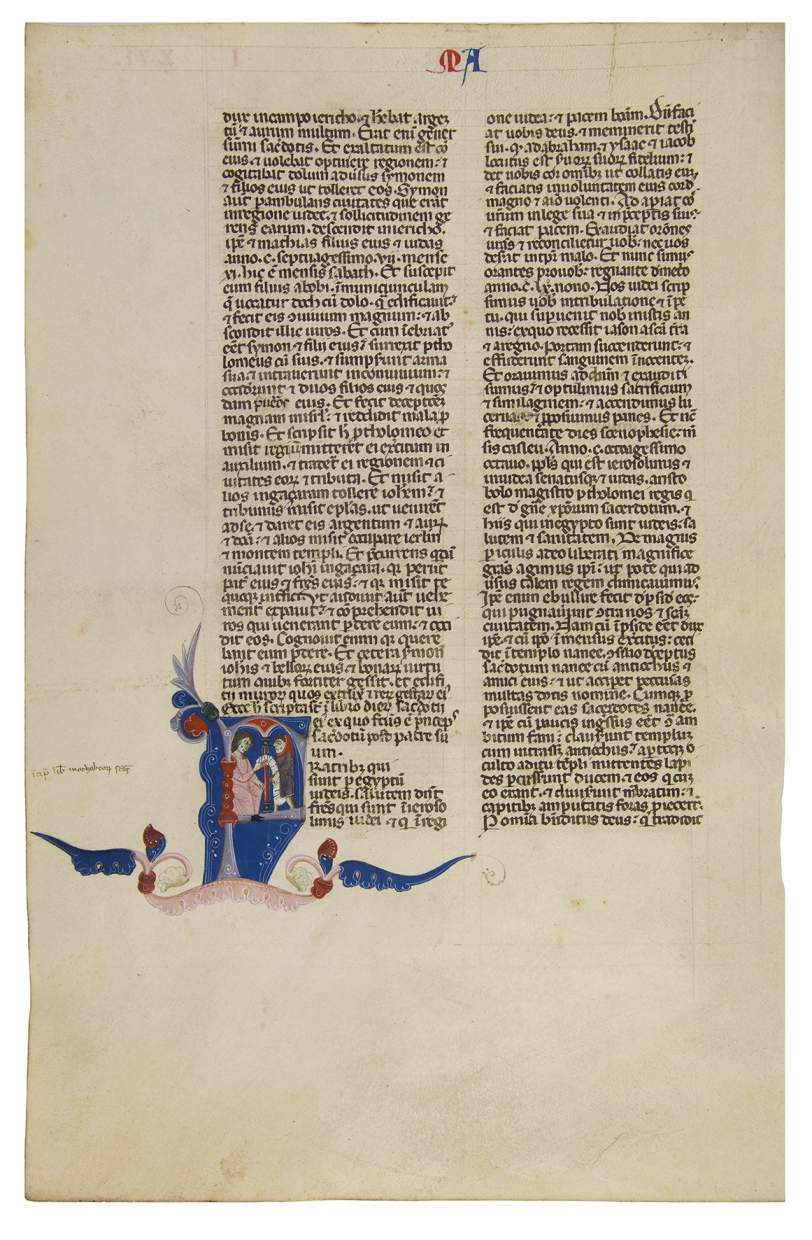 MA
dux in campo iericho. ⁊ hebat. arge
tū ⁊ aurum multum. Erat eni gener
sumi sacdotis. Et exaltatum est cor
eius ⁊ uolebat optinere regionem. ⁊
cogitabat dolum aduersus symonem
⁊ filios eius ut tolleret eos. Symon
aut pambulans ciuitates que erant
in regione iudee. ⁊ sollicitudinem ge
rens earum. descendit in iericho.
ipe ⁊ mathias filius eius ⁊ iudas
anno. c. septuagessimo. vii. mense
xi. hic ē mensis sabath. Et suscepit
eum filius abobi. in municiunculam
q uocatur doch cū dolo. q edificauit.
⁊ fecit eis ɔuiuium magnum. ⁊ ab
scondit illic uiros. Et cum inebriat
eēt symon ⁊ filii eius. surrexit ptho
lomeus cū suis. ⁊ sumpserunt arma
sua. ⁊ intrauerunt in conuiuium. ⁊
occiderunt ⁊ duos filios eius ⁊ quos
dam pueros eius. Et fecit deceptōez
magnam in isrl. ⁊ reddidit mala p
bonis. Et scripsit h ptholomeo et
misit regi ut mitteret ei exercitum in
auxilium. ⁊ traret ei regionem ⁊ ci
uitates eorum ⁊ tributa. Et misit a
lios in gaçaram tollere iohem. ⁊
tribunis misit eplas. ut uenirēt
ad se. ⁊ daret eis argentum ⁊ aurum
⁊ dona. ⁊ alios misit occupare ierlm
⁊ montem templi. Et pcurrens quidā
nuciauit iohi in gaçara. qr periit
pat eius ⁊ fres eius. ⁊ qr misit te
quoque interfici. Ut audiuit aut uehe
ment expauit. ⁊ cōprehendit ui
ros qui uenerant pdere eum. ⁊ occi
dit eos. Cognouit enim qr quere
bant eum pdere. Et cetera smonū
iohis ⁊ bellorum eius. ⁊ bonarum uirtu
tum quibus fortiter gessit. et edifi
cii murorum quos extruxit ⁊ rerum gestarum ei
Ecce h scripta st i libro dierum sacdotii
ei ex quo fcus ē princeps
sacdotum post patre su
um.
Fratribus qui
sunt p egyptū
iudeis. salutem dicūt
fres qui sunt in ieroso
limis iudei. ⁊ q in regi
one iudea. ⁊ pacem bonam. Bnfaci
at uobis deus. ⁊ meminerit testi
sui. q ad abraham. ⁊ ysaac ⁊ iacob
locutus est suorum fidelium. ⁊
det uobis cor omnibus ut colatis eum
⁊ faciatis in uoluntatem eius corde
magno ⁊ aio uolenti. Adapiat cor
urum in lege sua ⁊ in preceptis suis
⁊ faciat pacem. Exaudiat orōnes
uras ⁊ reconcilietur uob. nec uos
deserat in tpr malo. Et nunc sumus
orantes pro uob. regnante dmetio
anno. c. lx. nono. Nos iudei scrip
simus uob in tribulatione ⁊ impe
tu. qui supuenit nob in istis an
nis. ex quo recessit iason a sca terra
⁊ a regno. portam succenderunt. ⁊
effuderunt sanguinem innocentez.
Et orauimus ad dnm ⁊ exauditi
sumus. ⁊ optulimus sacrificium
⁊ similaginem. ⁊ accendimus lu
cernas. ⁊ pposuimus panes. Et nunc
frequentate dies scenophegie. m
sis casleu. Anno. c. octuagessimo
octauo. ppls qui est ierosolimis ⁊
in iudea senatusq ⁊ iudas. aristo
bolo magistro ptholomei regis q
est d gne xpōrum sacerdotum. ⁊
hiis qui in egypto sunt iudeis. sa
lutem ⁊ sanitatem. De magnis
piculis a deo liberati magnifice
gras agimus ipi. ut pote qui ad
uersus talem regem dimicauimus.
Ipe enim ebullire fecit d pside eos.
qui pugnauerunt ɔtra nos ⁊ scam
ciuitatem. Nam cū i pside eēt dux
ipe. ⁊ cū ipo inmensus exercitus. ceci
dit in templo nanee. ɔsilio deceptus
sacdotum nanee cum antiochus ⁊
amici eius. ⁊ ut acciperet peccunias
multas dotis nomine. Cumque p
posuissent eas sacerdotes nanee.
⁊ ipe cū paucis ingressus eēt ɔ am
bitum fani. clauserunt templum
cum intrasset antiochus. aptoq o
culto aditu tēpli mittentes lapi
des pcusserunt ducem. ⁊ eos q cum
eo erant. ⁊ diuiserunt mbratim. ⁊
capitibus amputatis foras piecert.
P omnia bndictus deus. q tradidit